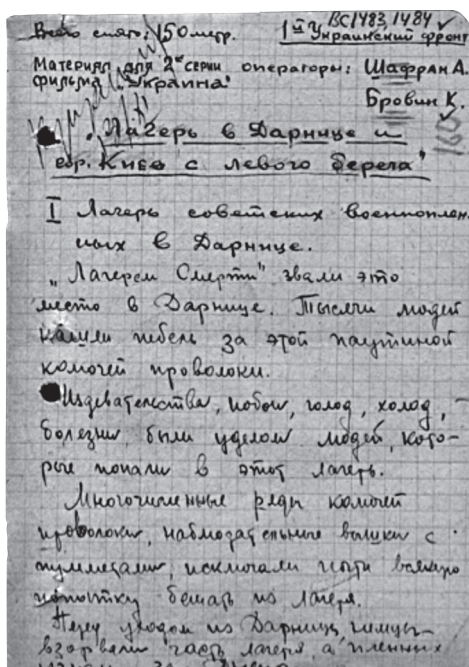 ВС1483, 1484
Всего снято: 150 метр. 1й Украинский фронт
Материал для 2й серии операторы: Шафран А.
фильма "Украина"
Бровин К.
160
"Лагерь в Дарнице и
Киев с левого берега"
I Лагерь советских военноплен-
ных в Дарнице.
"Лагерем Смерти" звали это
место в Дарнице. Тысячи людей
нашли гибель за этой паутиной
колючей проволоки.
Издевательства, побои, голод, холод, -
болезни были уделом людей, кото-
рые попали в этот лагерь.
Многочисленные ряды колючей
проволоки, наблюдательные вышки с
пулеметами, исключали всякую
попытку бежать из лагеря.
Перед уходом из Дарницы немцы
взорвали часть лагеря, а пленных